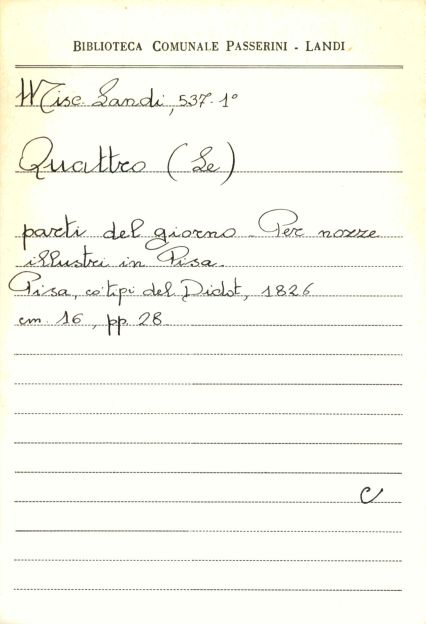 BIBLIOTECA COMUNALE PASSERINI - LANDI
Misc. Landi, 537. 1°
Quattro (Le)
parti del giorno - Per nozze
illustri in Pisa.
Pisa, co' tipi del Didot, 1826
cm. 16, pp. 28
C